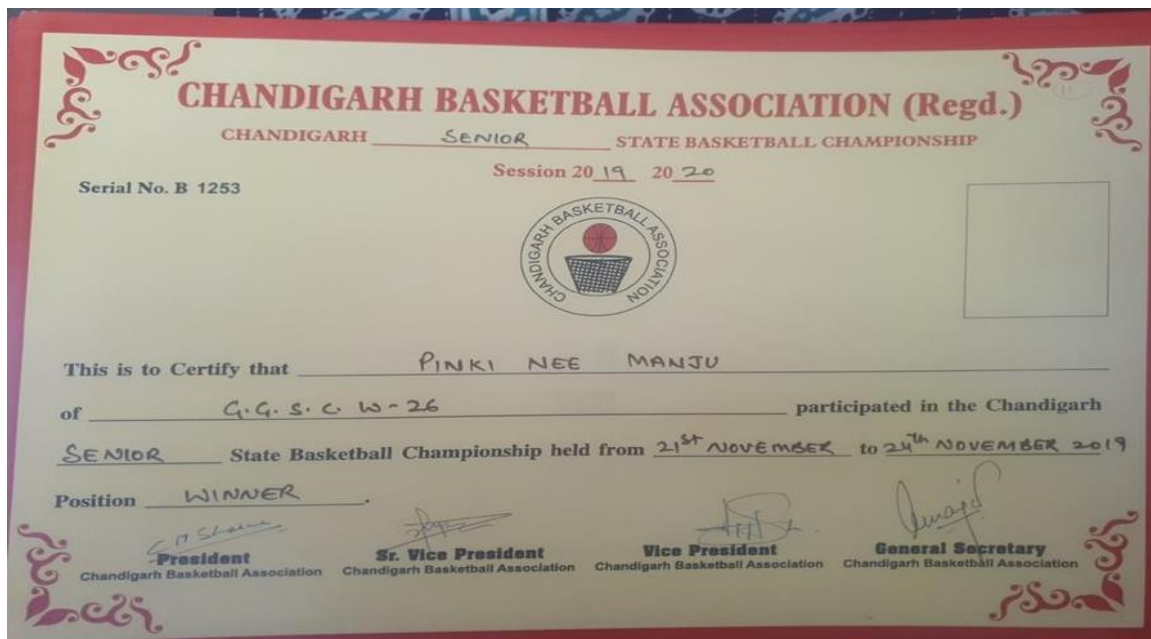 CHANDIGARH BASKETBALL ASSOCIATION (Regd.)
CHANDIGARH SENIOR STATE BASKETBALL CHAMPIONSHIP
Session 20 19 20 20
Serial No. B 1253
CHANDIGARH BASKETBALL ASSOCIATION
This is to Certify that PINKI NEE MANJU
of G.G.S.C.W-26 participated in the Chandigarh
SENIOR State Basketball Championship held from 21st NOVEMBER to 24th NOVEMBER 2019
Position WINNER.
President Sr. Vice President Vice President General Secretary
Chandigarh Basketball Association Chandigarh Basketball Association Chandigarh Basketball Association Chandigarh Basketball Association